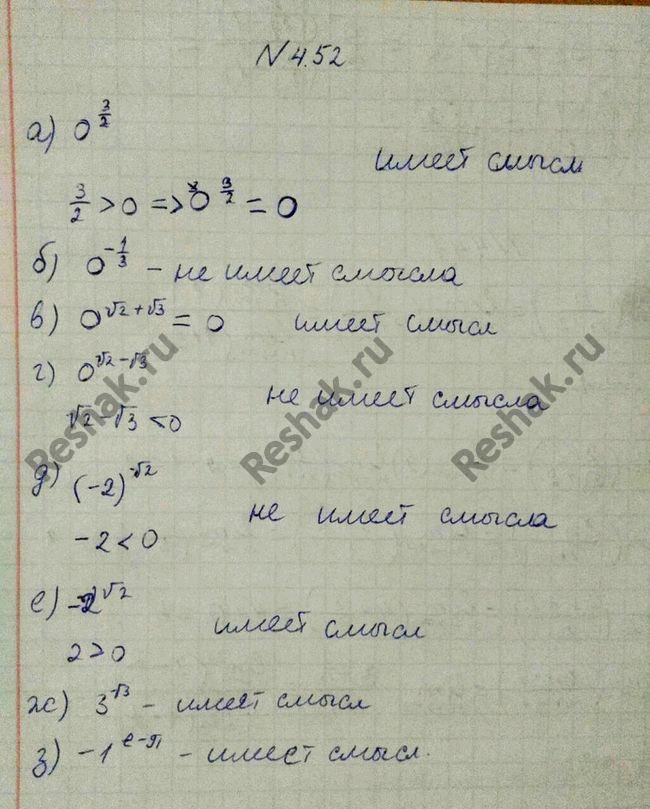 N 4.52
а) 0^{3/2}
имеет смысл
3/2 > 0 => 0^{3/2} = 0
б) 0^{-1/3} - не имеет смысла
в) 0^{√2+√3} = 0 имеет смысл
г) 0^{√2-√3}
не имеет смысла
√2-√3 < 0
д) (-2)^{-√2}
не имеет смысла
-2 < 0
е) -2^{√2}
имеет смысл
2 > 0
ж) 3^{√3} - имеет смысл
з) -1^{e-π} - имеет смысл.
Reshak.ru
Reshak.ru
Reshak.ru